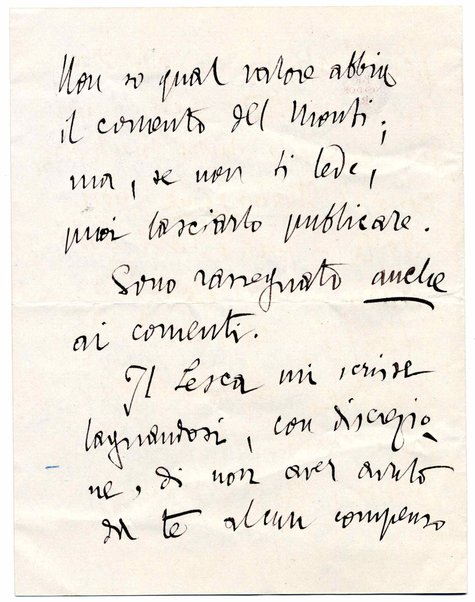 Non so qual valore abbia
il comento del Monti;
ma, se non ti lede,
puoi lasciarlo publicare.
Sono rassegnato anche
ai comenti.
Il Lesca mi scrisse
lagnandosi, con discrezio
ne, di non aver avuto
da te alcun compenso